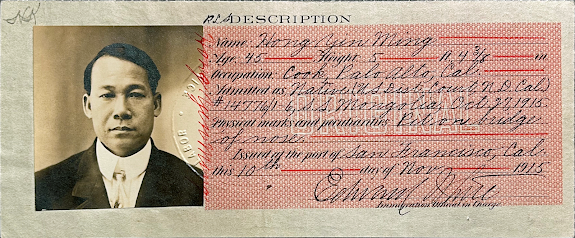 DESCRIPTION
Name: Hong Yun Ming
Age: 45 Height: 5 ft 4 3/8 in
Occupation: Cook, Palo Alto, Cal.
Admitted as Native (U.S. Dist. Court N.D. Cal)
#14776/1-6, S.S. Mongolia, Oct 27, 1915
Physical marks and peculiarities Pit on bridge
of nose.
Issued at the port of San Francisco, Cal.
this 10th day of Nov 1915
Immigration Official in Charge